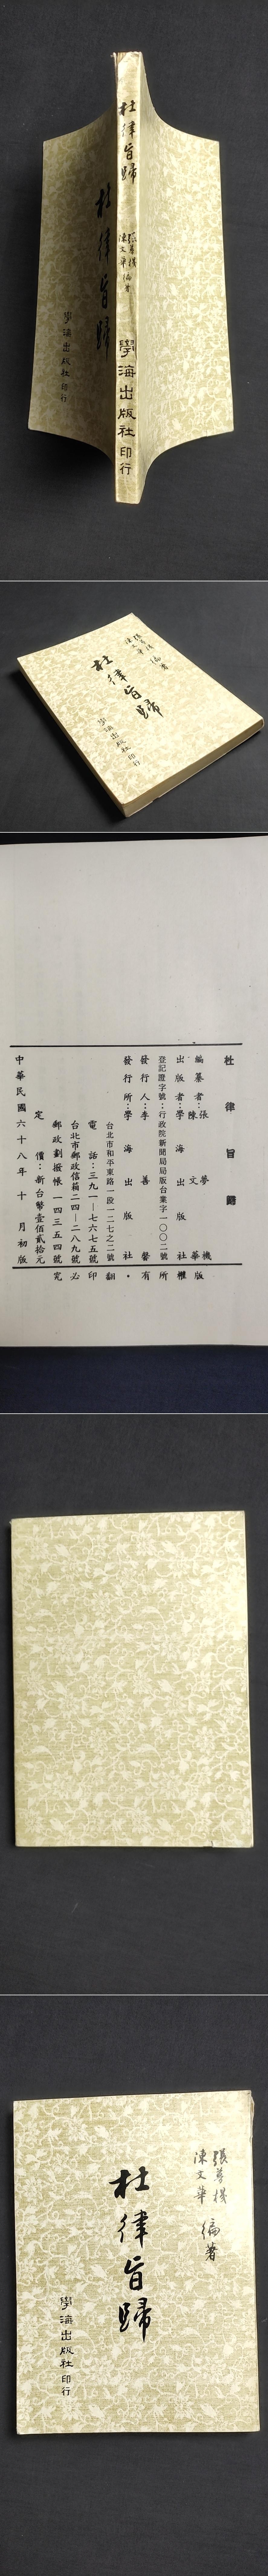 杜律旨歸
張夢機
陳文華 編著
學海出版社印行
杜律旨歸
學海出版社印行
張夢機
陳文華 編著
杜律旨歸
學海出版社印行
杜律旨歸
編纂者：張夢機
陳文華
出版者：學海出版社
登記證字號：行政院新聞局局版台業字一〇〇二號
發行人：李善馨
發行所：學海出版社
台北市和平東路一段一二七之二號
電話：三九一—七六七五號
台北市郵政信箱二四—二八九號
郵政劃撥帳一四三五四號
定價：新台幣壹佰貳拾元
中華民國六十八年十月初版
版權所有・翻印必究
張夢機
陳文華 編著
杜律旨歸
學海出版社印行